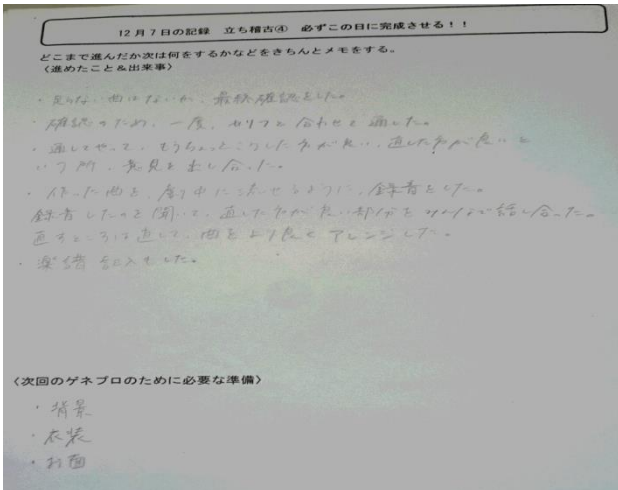 12月7日の記録 立ち稽古④ 必ずこの日に完成させる!!
どこまで進んだか次は何をするかなどをきちんとメモをする。
〈進めたこと&出来事〉
・足らない曲はないか、最終確認をした。
・確認のため、一度、セリフと合わせて通した。
・通してやって、もうちょっとこうした方が良い、直した方が良いと
いう所、意見を出し合った。
・作った曲を、劇中に流せるように、録音をした。
録音したのを聞いて、直した方が良い部分をみんなで話し合った。
直すところは直して、曲をより良くアレンジした。
・楽譜記入もした。
〈次回のゲネプロのために必要な準備〉
・背景
・衣装
・お面